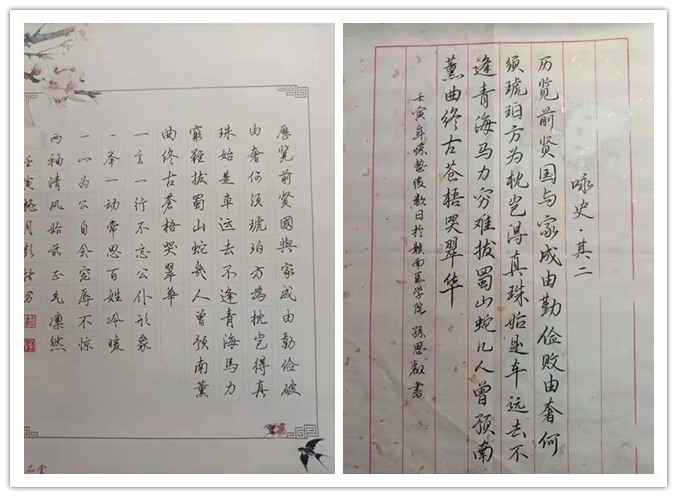 歷覽前賢國與家成由勤儉破
由奢何須琥珀方為枕豈得真
珠始是車遠去不逢青海馬力
窮難拔蜀山蛇幾人曾預南薰
曲終古蒼梧哭翠華
一言一行不忘公仆形象
一举一动常思百姓冷暖
一心为公自会宠辱不惊
两袖清风始 正气凛然
壬寅 月彭
咏史·其二
历览前贤国与家成由勤俭败由奢何
须琥珀方为枕岂得真珠始是车远去不
逢青海马力穷难拔蜀山蛇几人曾预南
薰曲终古苍梧哭翠华
壬寅年惊蛰后数日于赣南医学院 孙思 书